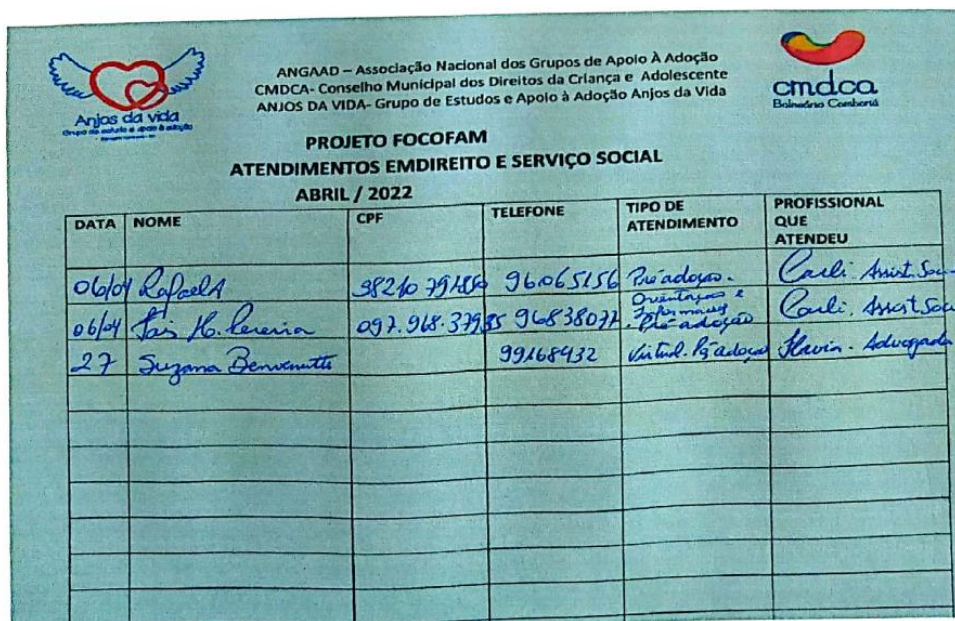 Anjos da vida
Grupo de estudo e apoio à adoção
ANGAAD – Associação Nacional dos Grupos de Apoio À Adoção
CMDCA- Conselho Municipal dos Direitos da Criança e Adolescente
ANJOS DA VIDA- Grupo de Estudos e Apoio à Adoção Anjos da Vida
cmdca
Balneário Camboriú
PROJETO FOCOFAM
ATENDIMENTOS EMDIREITO E SERVIÇO SOCIAL
ABRIL / 2022
DATA NOME CPF TELEFONE TIPO DE ATENDIMENTO PROFISSIONAL QUE ATENDEU
06/04 Rafael A 96065156 Pré adoção. Carli. Assist. Soc
06/04 H. Pereira 097.968.379.85 96838077 Orientações e Informações Pré-adoção Carli. Assist. Soc
27 Suzana Benvenutti 99168432 Virtual. Pré adoção Flavia. Advogada